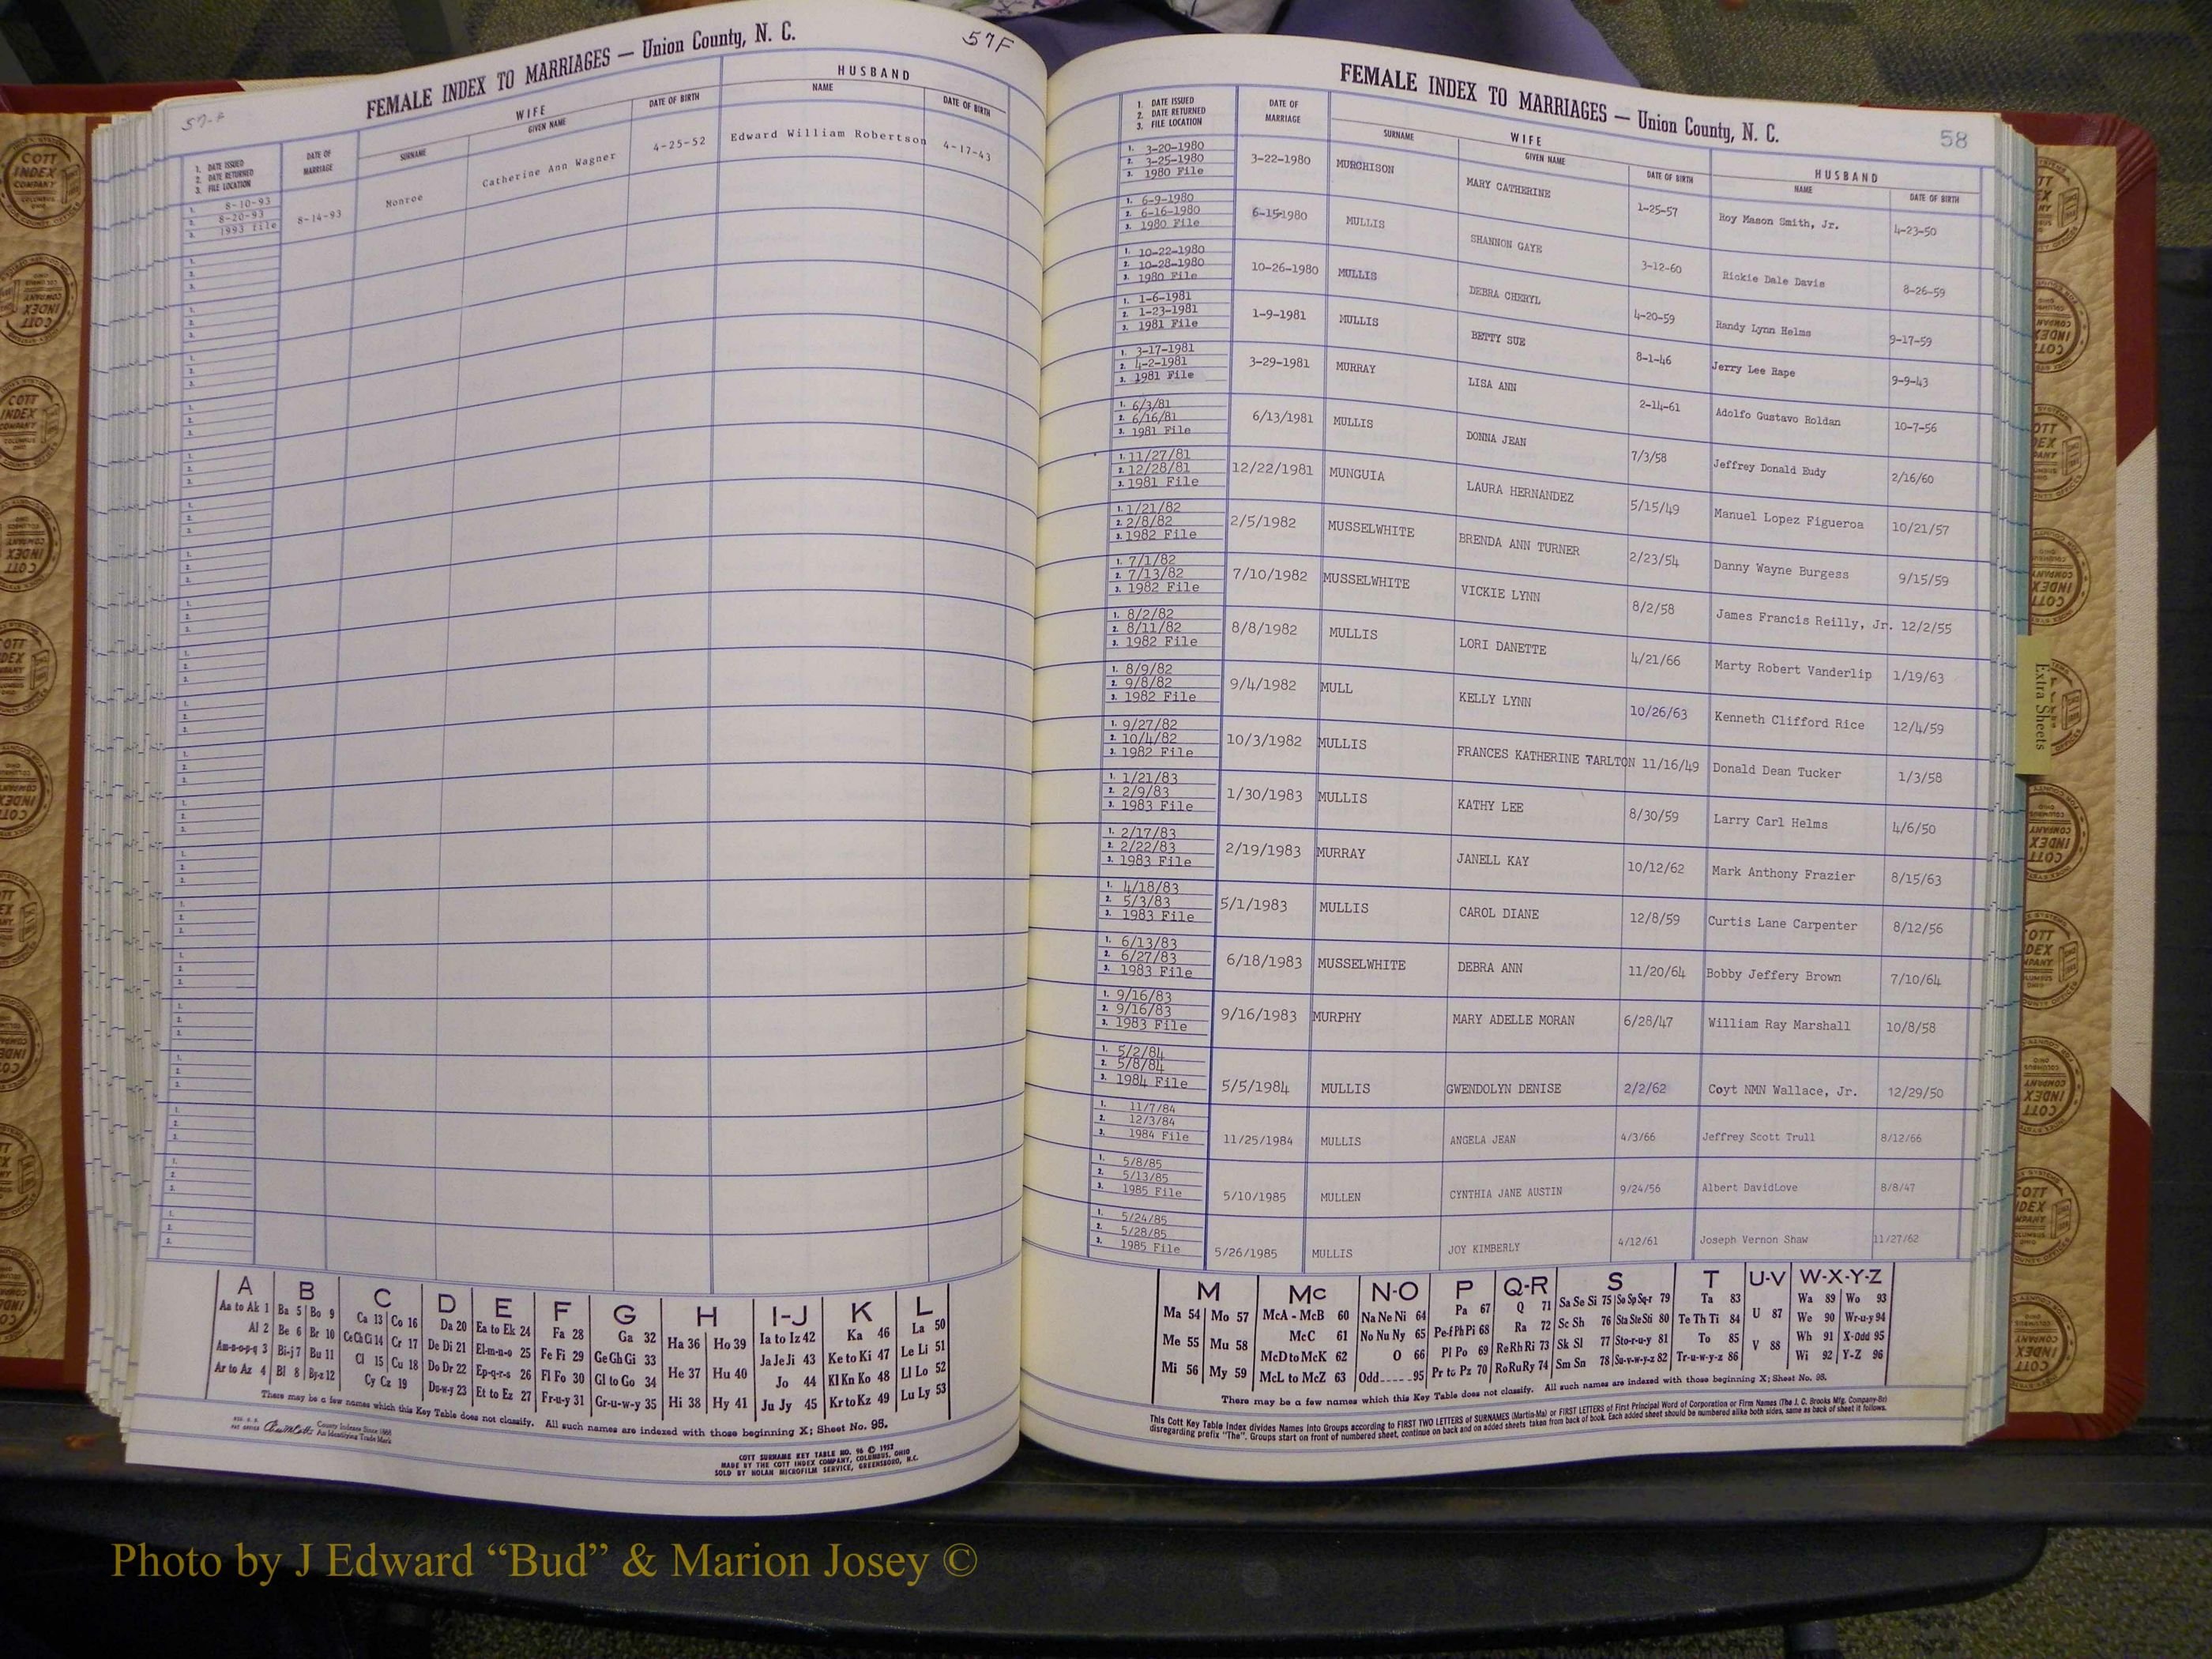 57-F
57F
FEMALE INDEX TO MARRIAGES — Union County, N. C.
1. DATE ISSUED
2. DATE RETURNED
3. FILE LOCATION
DATE OF MARRIAGE
WIFE
SURNAME
GIVEN NAME
DATE OF BIRTH
HUSBAND
NAME
DATE OF BIRTH
1. 8-10-93
2. 8-20-93
3. 1993 file
8-14-93 Monroe Catherine Ann Wagner 4-25-52 Edward William Robertson 4-17-43
A B C D E F G H I-J K L
Aa to Ak 1 Ba 5 Bo 9 Ca 13 Co 16 Da 20 Ea to Ek 24 Fa 28 Ga 32 Ha 36 Ho 39 Ia to Iz 42 Ka 46 La 50
Al 2 Be 6 Br 10 Ce Ch Ci 14 Cr 17 De Di 21 El-m-n-o 25 Fe Fi 29 Ge Gh Gi 33 He 37 Hu 40 Ja Je Ji 43 Ke to Ki 47 Le Li 51
Am-n-o-p-q 3 Bi-j 7 Bu 11 Cl 15 Cu 18 Do Dr 22 Ep-q-r-s 26 Fl Fo 30 Gl to Go 34 Hi 38 Hy 41 Jo 44 Kl Kn Ko 48 Ll Lo 52
Ar to Az 4 Bl 8 By-z 12 Cy Cz 19 Du-w-y 23 Et to Ez 27 Fr-u-y 31 Gr-u-w-y 35 Ju Jy 45 Kr to Kz 49 Lu Ly 53
There may be a few names which this Key Table does not classify. All such names are indexed with those beginning X; Sheet No. 95.
County Indexes Since 1888
An Identifying Trade Mark
COTT SURNAME KEY TABLE NO. 96 © 1952
MADE BY THE COTT INDEX COMPANY, COLUMBUS, OHIO
SOLD BY NOLAN MICROFILM SERVICE, GREENSBORO, N.C.
FEMALE INDEX TO MARRIAGES — Union County, N. C.
58
1. DATE ISSUED
2. DATE RETURNED
3. FILE LOCATION
DATE OF MARRIAGE
WIFE
SURNAME
GIVEN NAME
DATE OF BIRTH
HUSBAND
NAME
DATE OF BIRTH
1. 3-20-1980
2. 3-25-1980
3. 1980 File
3-22-1980 MURCHISON MARY CATHERINE 1-25-57 Roy Mason Smith, Jr. 4-23-50
1. 6-9-1980
2. 6-16-1980
3. 1980 File
6-15-1980 MULLIS SHANNON GAYE 3-12-60 Rickie Dale Davis 8-26-59
1. 10-22-1980
2. 10-28-1980
3. 1980 File
10-26-1980 MULLIS DEBRA CHERYL 4-20-59 Randy Lynn Helms 9-17-59
1. 1-6-1981
2. 1-23-1981
3. 1981 File
1-9-1981 MULLIS BETTY SUE 8-1-46 Jerry Lee Rape 9-9-43
1. 3-17-1981
2. 4-2-1981
3. 1981 File
3-29-1981 MURRAY LISA ANN 2-14-61 Adolfo Gustavo Roldan 10-7-56
1. 6/3/81
2. 6/16/81
3. 1981 File
6/13/1981 MULLIS DONNA JEAN 7/3/58 Jeffrey Donald Eudy 2/16/60
1. 11/27/81
2. 12/28/81
3. 1981 File
12/22/1981 MUNGUIA LAURA HERNANDEZ 5/15/49 Manuel Lopez Figueroa 10/21/57
1. 1/21/82
2. 2/8/82
3. 1982 File
2/5/1982 MUSSELWHITE BRENDA ANN TURNER 2/23/54 Danny Wayne Burgess 9/15/59
1. 7/1/82
2. 7/13/82
3. 1982 File
7/10/1982 MUSSELWHITE VICKIE LYNN 8/2/58 James Francis Reilly, Jr. 12/2/55
1. 8/2/82
2. 8/11/82
3. 1982 File
8/8/1982 MULLIS LORI DANETTE 4/21/66 Marty Robert Vanderlip 1/19/63
1. 8/9/82
2. 9/8/82
3. 1982 File
9/4/1982 MULL KELLY LYNN 10/26/63 Kenneth Clifford Rice 12/4/59
1. 9/27/82
2. 10/4/82
3. 1982 File
10/3/1982 MULLIS FRANCES KATHERINE TARLTON 11/16/49 Donald Dean Tucker 1/3/58
1. 1/21/83
2. 2/9/83
3. 1983 File
1/30/1983 MULLIS KATHY LEE 8/30/59 Larry Carl Helms 4/6/50
1. 2/17/83
2. 2/22/83
3. 1983 File
2/19/1983 MURRAY JANELL KAY 10/12/62 Mark Anthony Frazier 8/15/63
1. 4/18/83
2. 5/3/83
3. 1983 File
5/1/1983 MULLIS CAROL DIANE 12/8/59 Curtis Lane Carpenter 8/12/56
1. 6/13/83
2. 6/27/83
3. 1983 File
6/18/1983 MUSSELWHITE DEBRA ANN 11/20/64 Bobby Jeffery Brown 7/10/64
1. 9/16/83
2. 9/16/83
3. 1983 File
9/16/1983 MURPHY MARY ADELLE MORAN 6/28/47 William Ray Marshall 10/8/58
1. 5/2/84
2. 5/8/84
3. 1984 File
5/5/1984 MULLIS GWENDOLYN DENISE 2/2/62 Coyt NMN Wallace, Jr. 12/29/50
1. 11/7/84
2. 12/3/84
3. 1984 File
11/25/1984 MULLIS ANGELA JEAN 4/3/66 Jeffrey Scott Trull 8/12/66
1. 5/8/85
2. 5/13/85
3. 1985 File
5/10/1985 MULLEN CYNTHIA JANE AUSTIN 9/24/56 Albert DavidLove 8/8/47
1. 5/24/85
2. 5/28/85
3. 1985 File
5/26/1985 MULLIS JOY KIMBERLY 4/12/61 Joseph Vernon Shaw 11/27/62
M Mc N-O P Q-R S T U-V W-X-Y-Z
Ma 54 Mo 57 McA - McB 60 Na Ne Ni 64 Pa 67 Q 71 Sa Se Si 75 So Sp Sq-r 79 Ta 83 U 87 Wa 89 Wo 93
Me 55 Mu 58 McC 61 No Nu Ny 65 Pe-f Ph Pi 68 Ra 72 Sc Sh 76 Sta Ste Sti 80 Te Th Ti 84 V 88 We 90 Wr-u-y 94
Mi 56 My 59 McD to McK 62 O 66 Pl Po 69 Re Rh Ri 73 Sk Sl 77 Sto-r-u-y 81 To 85 Wh 91 X-Odd 95
McL to McZ 63 Odd 95 Pr to Pz 70 Ro Ru Ry 74 Sm Sn 78 Su-v-w-y-z 82 Tr-u-w-y-z 86 Wi 92 Y-Z 96
There may be a few names which this Key Table does not classify. All such names are indexed with those beginning X; Sheet No. 95.
This Cott Key Table Index divides Names into Groups according to FIRST TWO LETTERS of SURNAMES (Martin-Ma) or FIRST LETTERS of First Principal Word of Corporation or Firm Names (The J. C. Brooks Mfg. Company-Br)
disregarding prefix "The". Groups start on front of numbered sheet, continue on back and on added sheets taken from back of book. Each added sheet should be numbered alike both sides, same as back of sheet it follows.
Extra Sheets
COTT INDEX COMPANY
Photo by J Edward “Bud” & Marion Josey ©